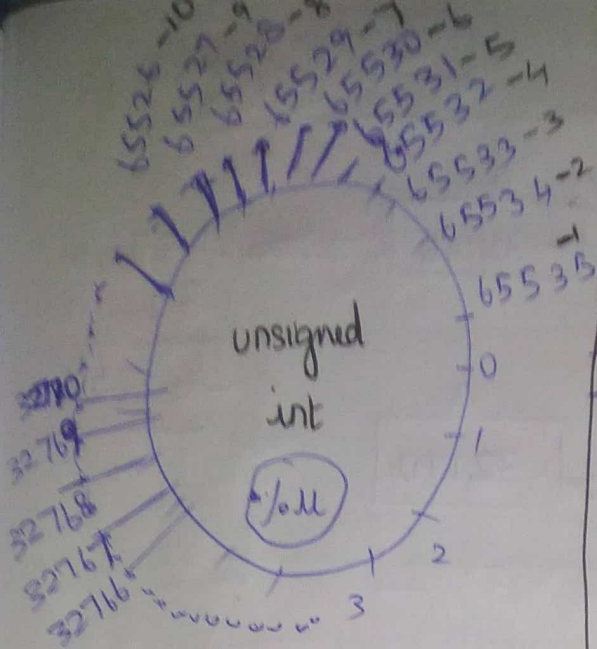 65526 -10
65527 -9
65528 -8
65529 -7
65530 -6
65531 -5
65532 -4
65533 -3
65534 -2
65535 -1
0
1
2
3
32766
32767
32768
32769
unsigned
int
%u